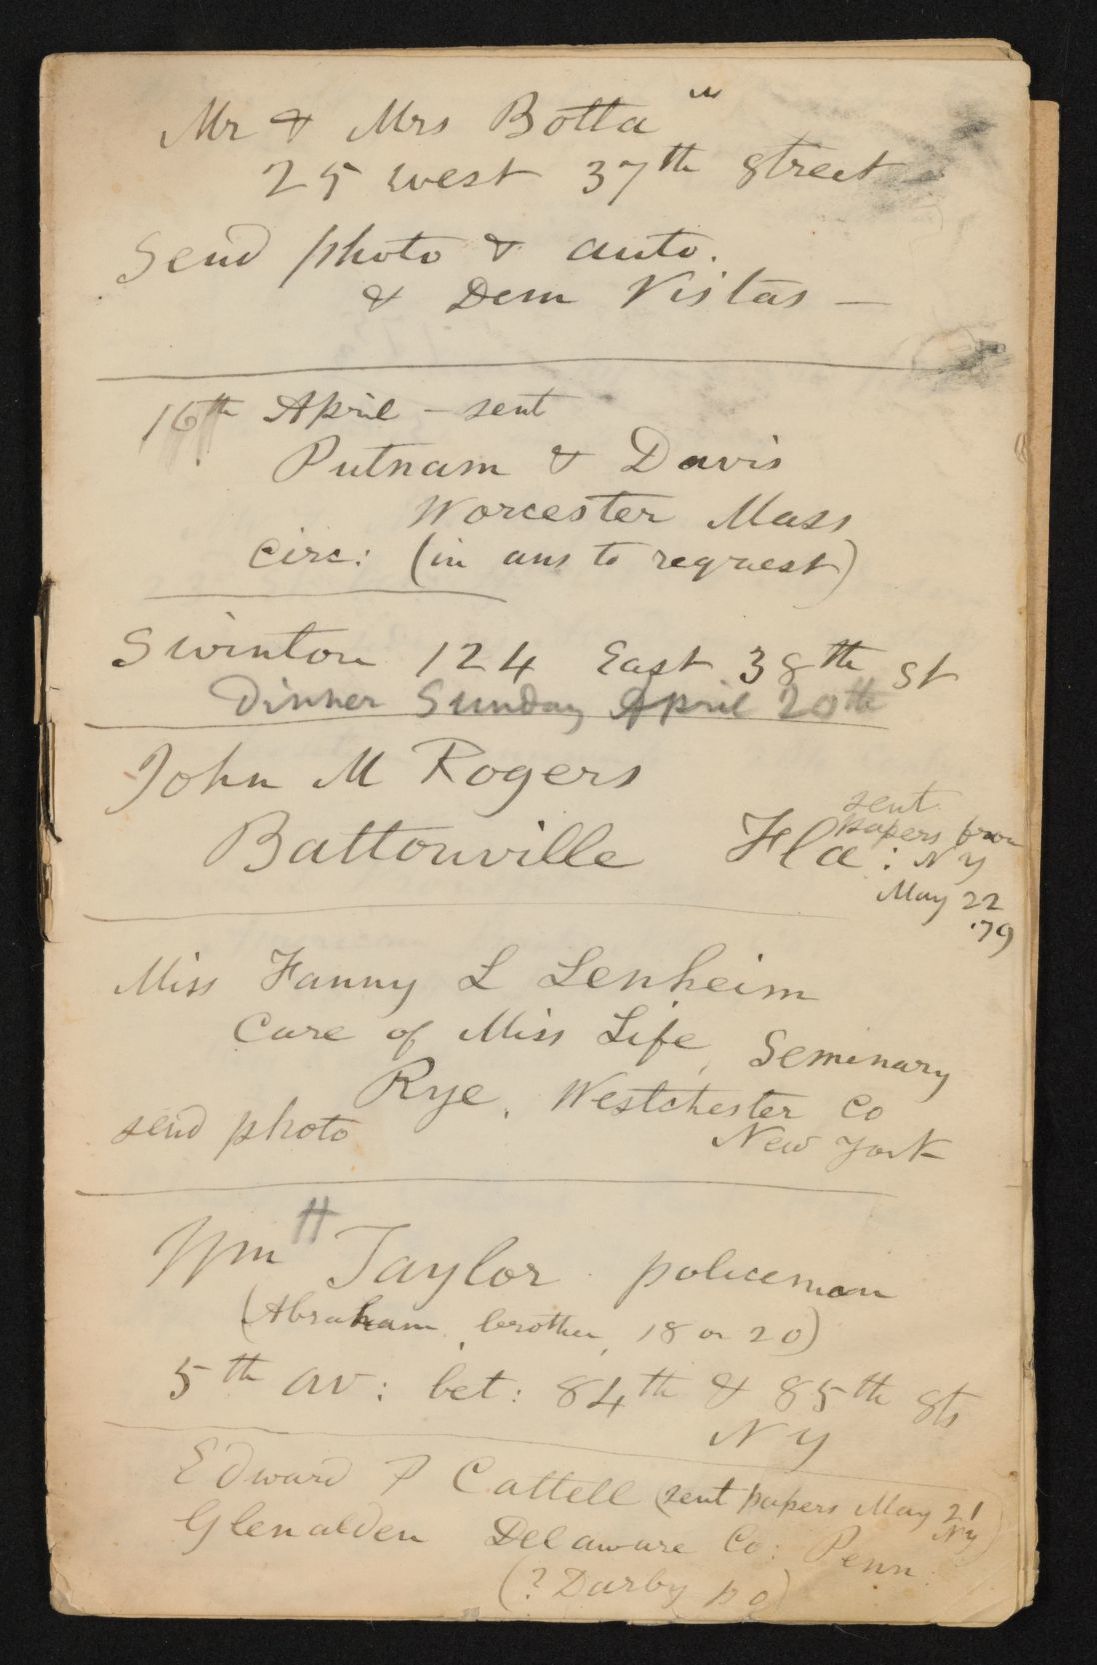 Mr & Mrs Botta
25 west 37th street
Send photo & auto.
& Dem Vistas —
16th April – sent
Putnam & Davis
Worcester Mass
circ: (in ans to request)
Swinton 124 East 38th st
Dinner Sunday April 20th
John M Rogers
Battonville Fla:
sent
papers from
N Y
May 22
'79
Miss Fanny L Lenheim
care of Miss Life, Seminary
Rye, Westchester Co
send photo New York
Wm H Taylor policeman
(Abraham, brother, 18 or 20)
5th av: bet: 84th & 85th sts
N Y
Edward P Cattell (sent papers May 21
N Y)
Glenalden Delaware Co: Penn
(? Darby p o)